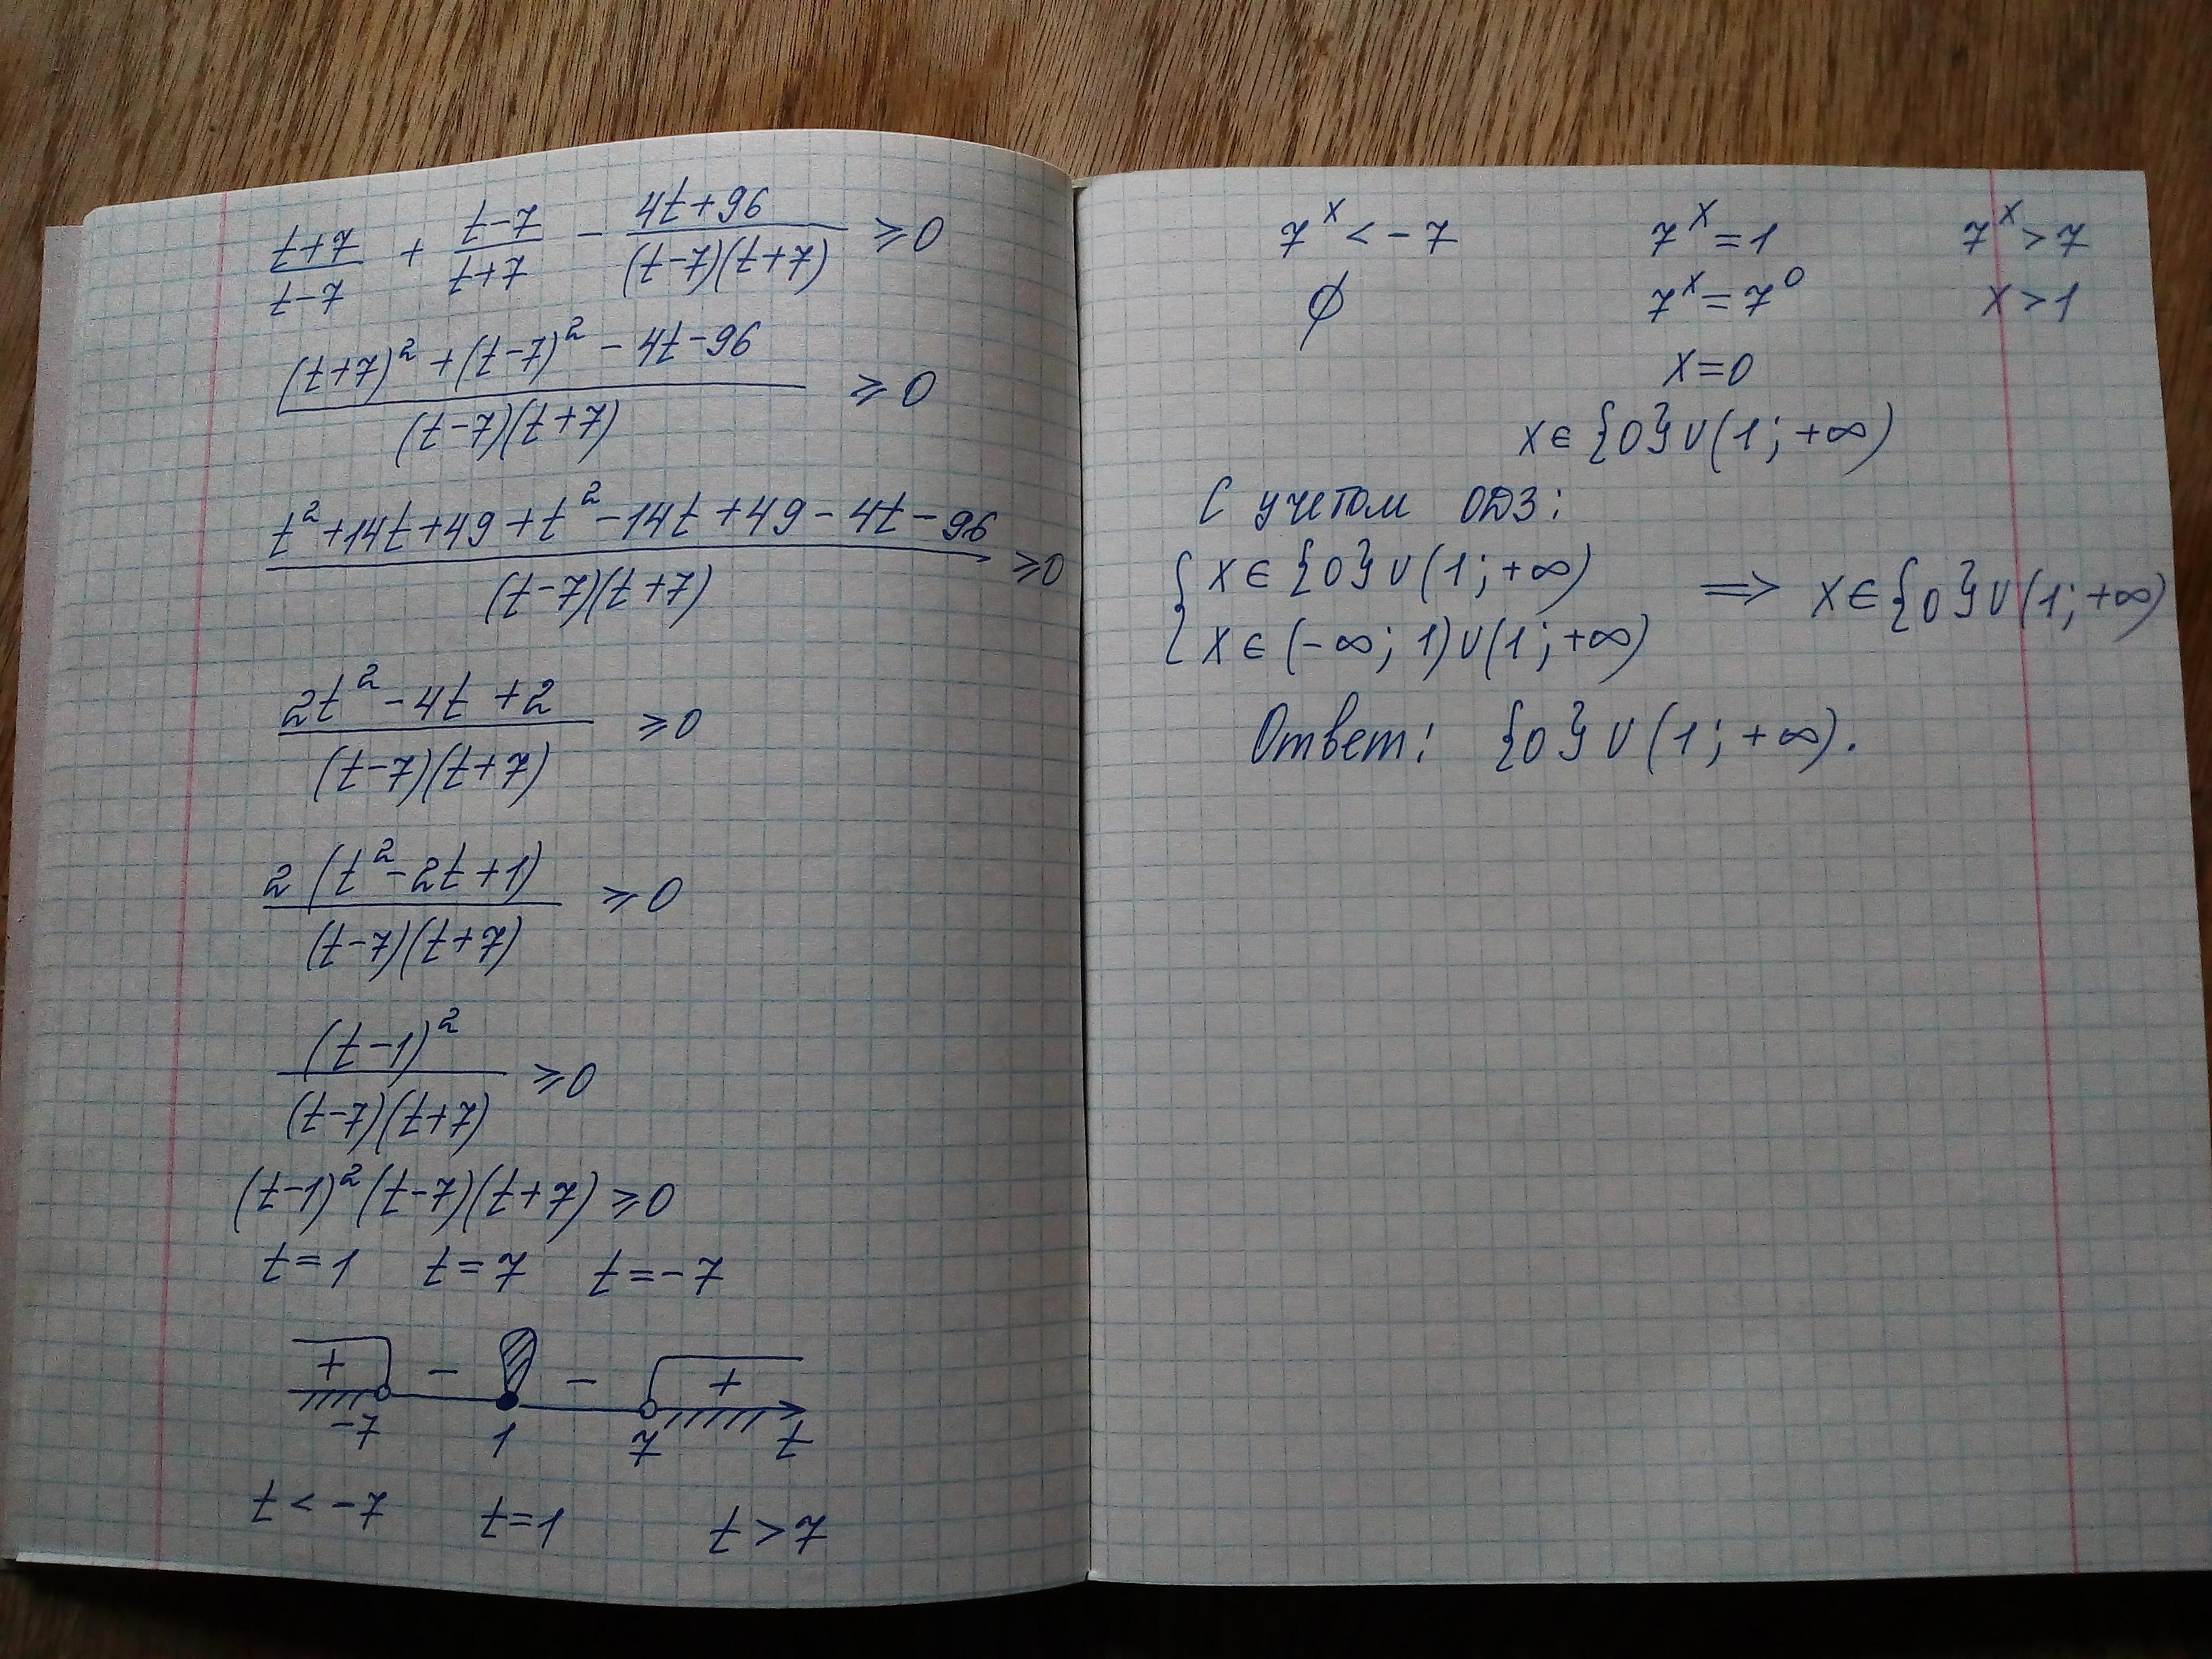 (t+7)/(t-7) + (t-7)/(t+7) - (4t+96)/((t-7)(t+7)) ≥ 0
((t+7)² + (t-7)² - 4t - 96)/((t-7)(t+7)) ≥ 0
(t² + 14t + 49 + t² - 14t + 49 - 4t - 96)/((t-7)(t+7)) ≥ 0
(2t² - 4t + 2)/((t-7)(t+7)) ≥ 0
2(t² - 2t + 1)/((t-7)(t+7)) ≥ 0
(t-1)²/((t-7)(t+7)) ≥ 0
(t-1)²(t-7)(t+7) ≥ 0
t=1 t=7 t=-7
+ - - +
-7 1 7 t
t < -7 t=1 t > 7
7ˣ < -7 7ˣ = 1 7ˣ > 7
∅ 7ˣ = 7⁰ x > 1
x=0
x ∈ {0} ∪ (1; +∞)
С учетом ОДЗ:
{ x ∈ {0} ∪ (1; +∞) ⇒ x ∈ {0} ∪ (1; +∞)
x ∈ (-∞; 1) ∪ (1; +∞)
Ответ: {0} ∪ (1; +∞).